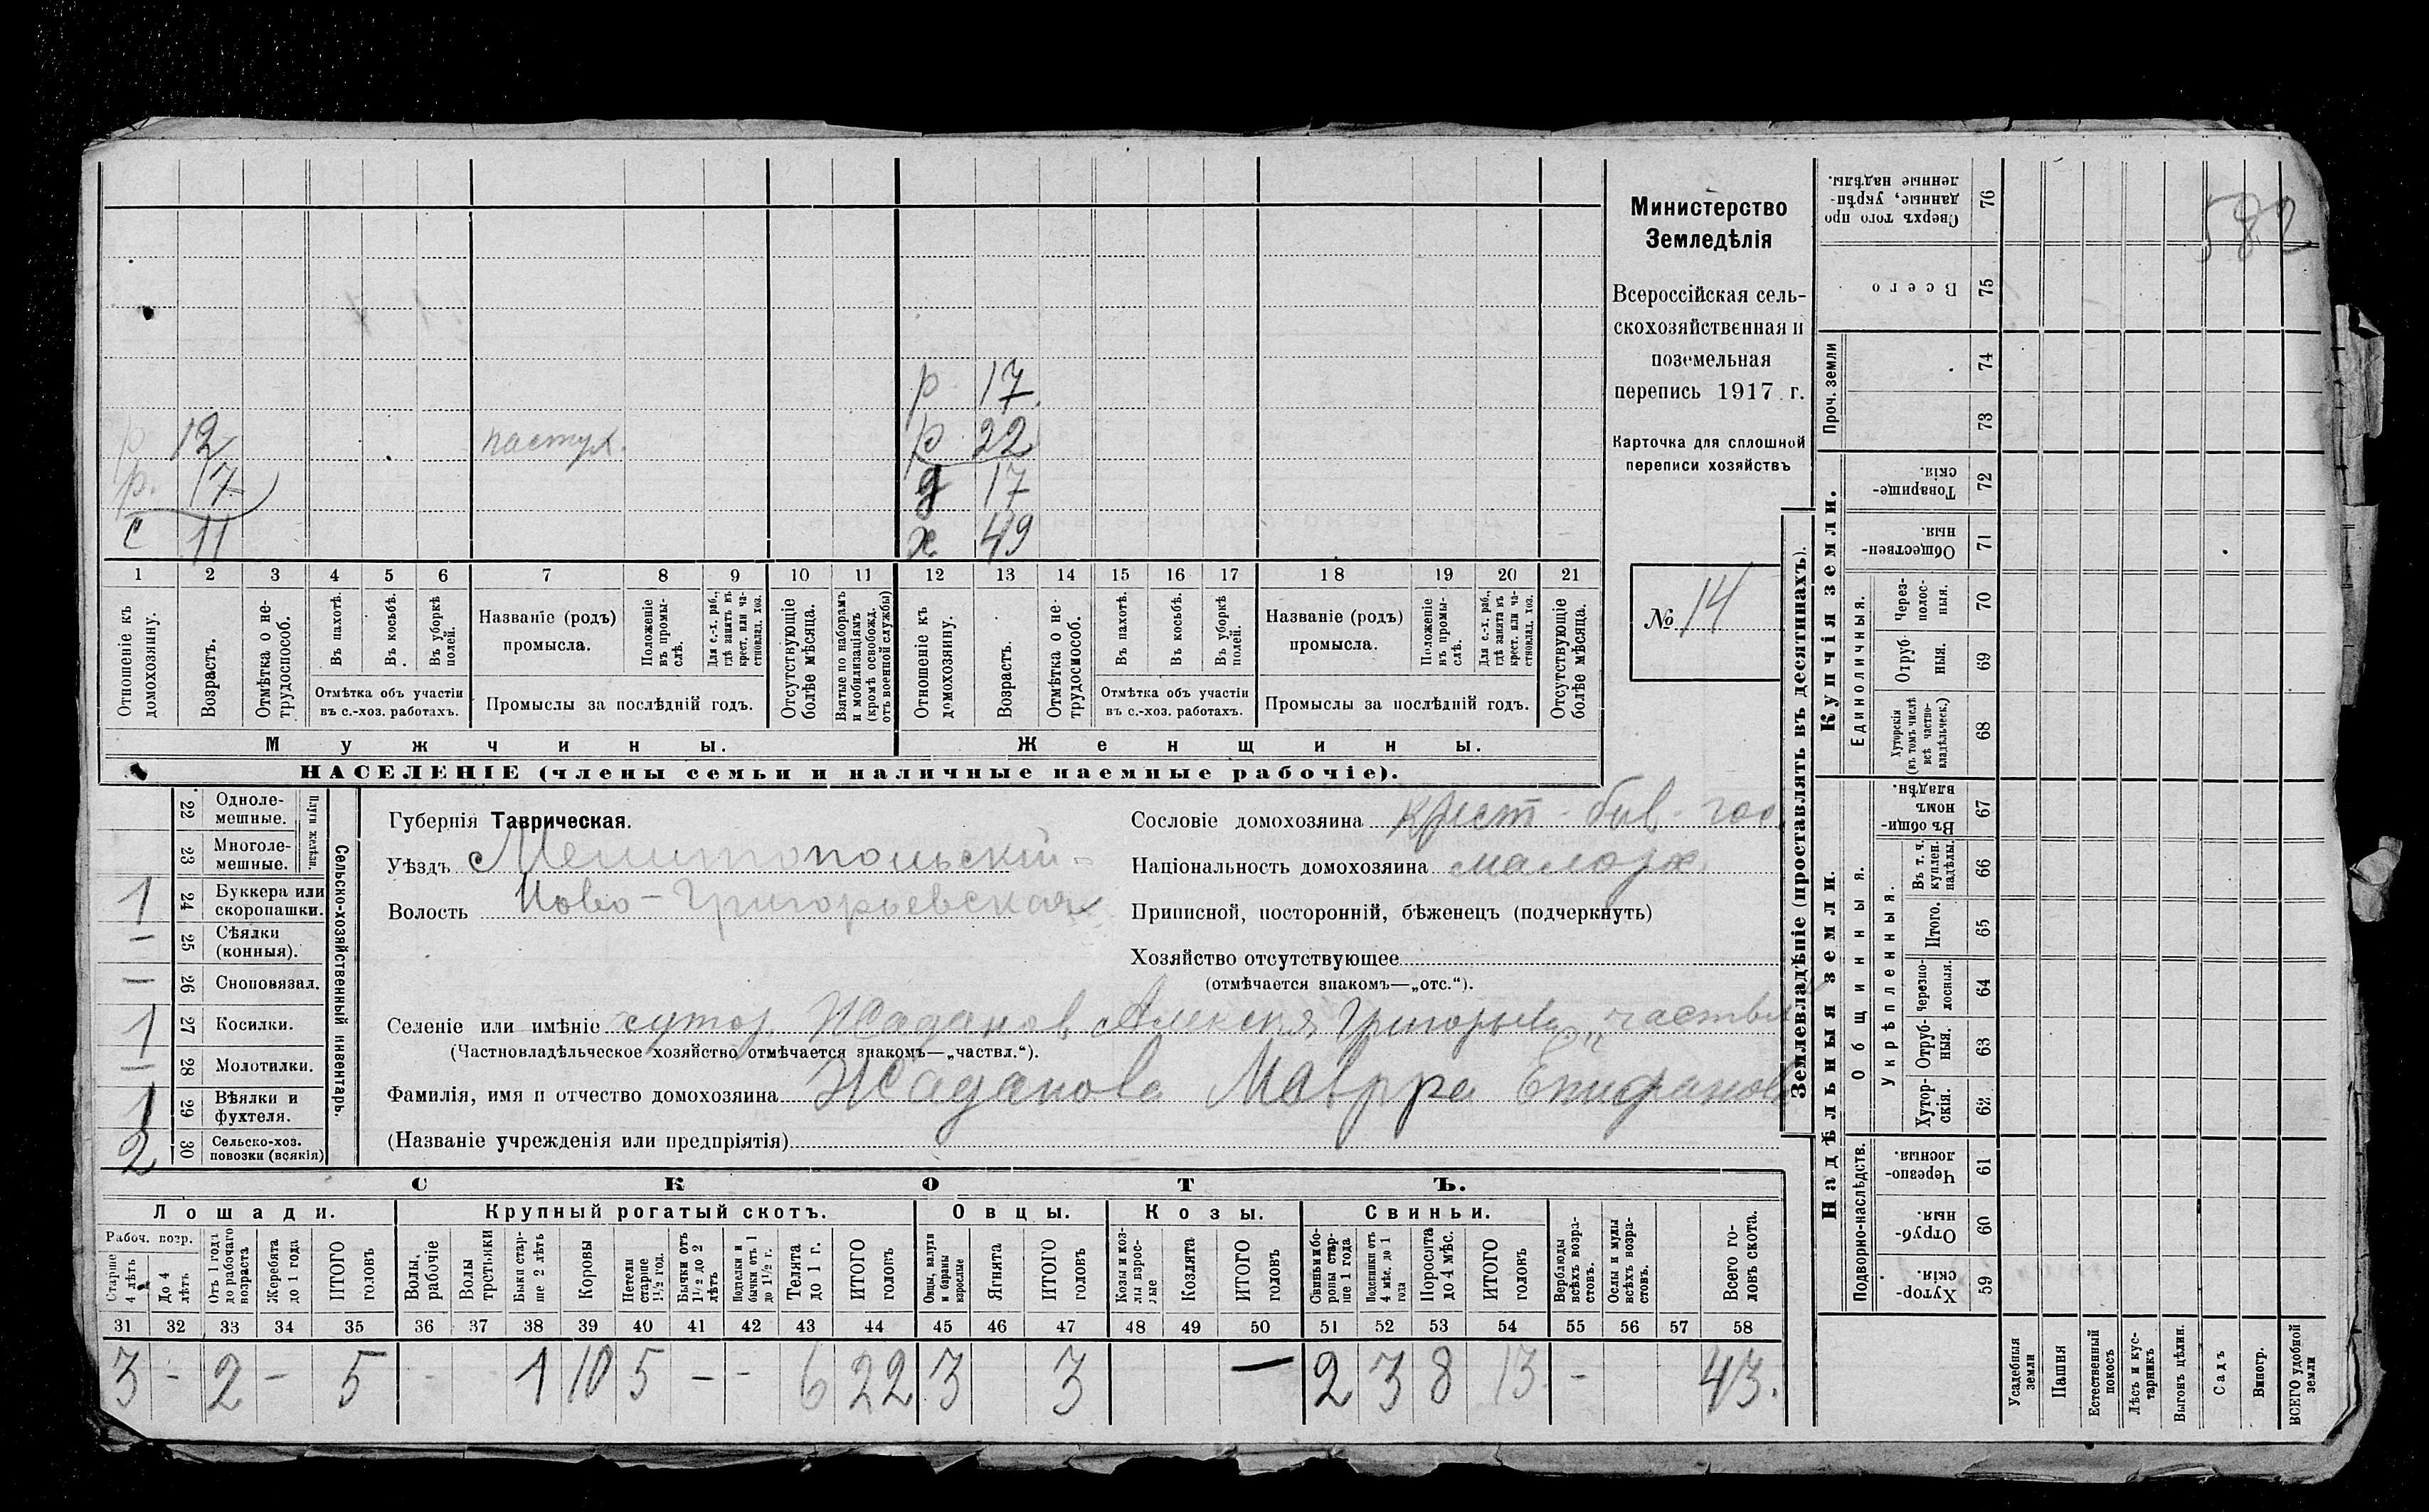 582
Министерство
Земледѣлія
Всероссійская сель-
скохозяйственная и
поземельная
перепись 1917 г.
Карточка для сплошной
переписи хозяйствъ
№ 14
р 17
р 12 пастух. р 22
р. 17 д 17
с 11 х 49
1 2 3 4 5 6 7 8 9 10 11 12 13 14 15 16 17 18 19 20 21
Отношеніе къ домохозяину.
Возрастъ.
Отмѣтка о не-трудоспособ.
Въ пахотѣ.
Въ косьбѣ.
Въ уборкѣ полей.
Отмѣтка объ участіи
въ с.-хоз. работахъ.
Названіе (родъ)
промысла.
Положеніе въ промы-слѣ.
Для с.-х. раб., гдѣ занятъ въ крест. или ча-стновлад. хоз.
Промыслы за послѣдній годъ.
Отсутствующіе болѣе мѣсяца.
Взятые по наборамъ и мобилизаціямъ (кромѣ освобожд. отъ военной службы)
Отношеніе къ домохозяину.
Возрастъ.
Отмѣтка о не-трудоспособ.
Въ пахотѣ.
Въ косьбѣ.
Въ уборкѣ полей.
Отмѣтка объ участіи
въ с.-хоз. работахъ.
Названіе (родъ)
промысла.
Положеніе въ промы-слѣ.
Для с.-х. раб., гдѣ занятъ въ крест. или ча-стновлад. хоз.
Промыслы за послѣдній годъ.
Отсутствующіе болѣе мѣсяца.
Мужчины. Женщины.
НАСЕЛЕНІЕ (члены семьи и наличные наемные рабочіе).
Сельско-хозяйственный инвентарь.
Плуги желѣзн.
22 Одноле-мешные.
23 Многоле-мешные.
1 24 Буккера или скоропашки.
– 25 Сѣялки (конныя).
– 26 Сноповязал.
1 27 Косилки.
– 28 Молотилки.
1 29 Вѣялки и фухтеля.
2 30 Сельско-хоз. повозки (всякія)
Губернія Таврическая.
Уѣздъ Мелитопольскій
Волость Ново-Григорьевская
Сословіе домохозяина крест-быв-гос
Національность домохозяина малорос.
Приписной, посторонній, бѣженецъ (подчеркнуть)
Хозяйство отсутствующее
(отмѣчается знакомъ—„отс.“).
Селеніе или имѣніе хутор Жаданов Алексея Григорьева частвл
(Частновладѣльческое хозяйство отмѣчается знакомъ—„частвл.“).
Фамилія, имя и отчество домохозяина Жаданова Мавра Епифанов
(Названіе учрежденія или предпріятія)
СКОТЪ.
Лошади. Крупный рогатый скотъ. Овцы. Козы. Свиньи.
Рабоч. возр.
Старше 4 лѣтъ
До 4 лѣтъ
Отъ 1 года до рабочаго возраста
Жеребята до 1 года
ИТОГО головъ
Волы, рабочіе
Волы третьяки
Быки стар-ше 2 лѣтъ
Коровы
Нетели старше 1½ год.
Бычки отъ 1½ до 2 лѣтъ
Подтелки и бычки отъ 1 до 1½ г.
Телята до 1 г.
ИТОГО головъ
Овцы, валухи и бараны взрослые
Ягнята
ИТОГО головъ
Козы и коз-лы взрос-лые
Козлята
ИТОГО головъ
Свиньи и бо-ровы стар-ше 1 года
Подсвинки отъ 4 мѣс. до 1 года
Поросята до 4 мѣс.
ИТОГО головъ
Верблюды всѣхъ возра-стовъ.
Ослы и мулы всѣхъ возра-стовъ.
Всего го-ловъ скота.
31 32 33 34 35 36 37 38 39 40 41 42 43 44 45 46 47 48 49 50 51 52 53 54 55 56 57 58
3 - 2 - 5 - - 1 10 5 – - 6 22 3 3 — 2 3 8 13 - 43.
Землевладѣніе (проставлять въ десятинахъ).
Купчія земли.
Надѣльныя земли.
Сверхъ того про-данные, укрѣп-ленные надѣлы. 76
Всего 75
Проч. земли 74
73
Товарище-скія. 72
Обществен-ныя. 71
Единоличныя.
Через-полос-ныя. 70
Отруб-ныя. 69
Хуторскія (въ томъ числѣ всѣ частно-владѣльческ.) 68
Общинныя.
Въ общин-номъ владѣн. 67
Укрѣпленныя.
Въ т. ч. куплен. надѣлы. 66
Итого. 65
Черезпо-лосныя. 64
Отруб-ныя. 63
Хутор-скія. 62
Подворно-наслѣдств.
Черезпо-лосныя. 61
Отруб-ныя. 60
Хутор-скія. 59
Усадебныя земли
Пашня
Естественный покосъ
Лѣсъ и кус-тарникъ
Выгонъ цѣлин.
Садъ
Виногр.
ВСЕГО удобной земли